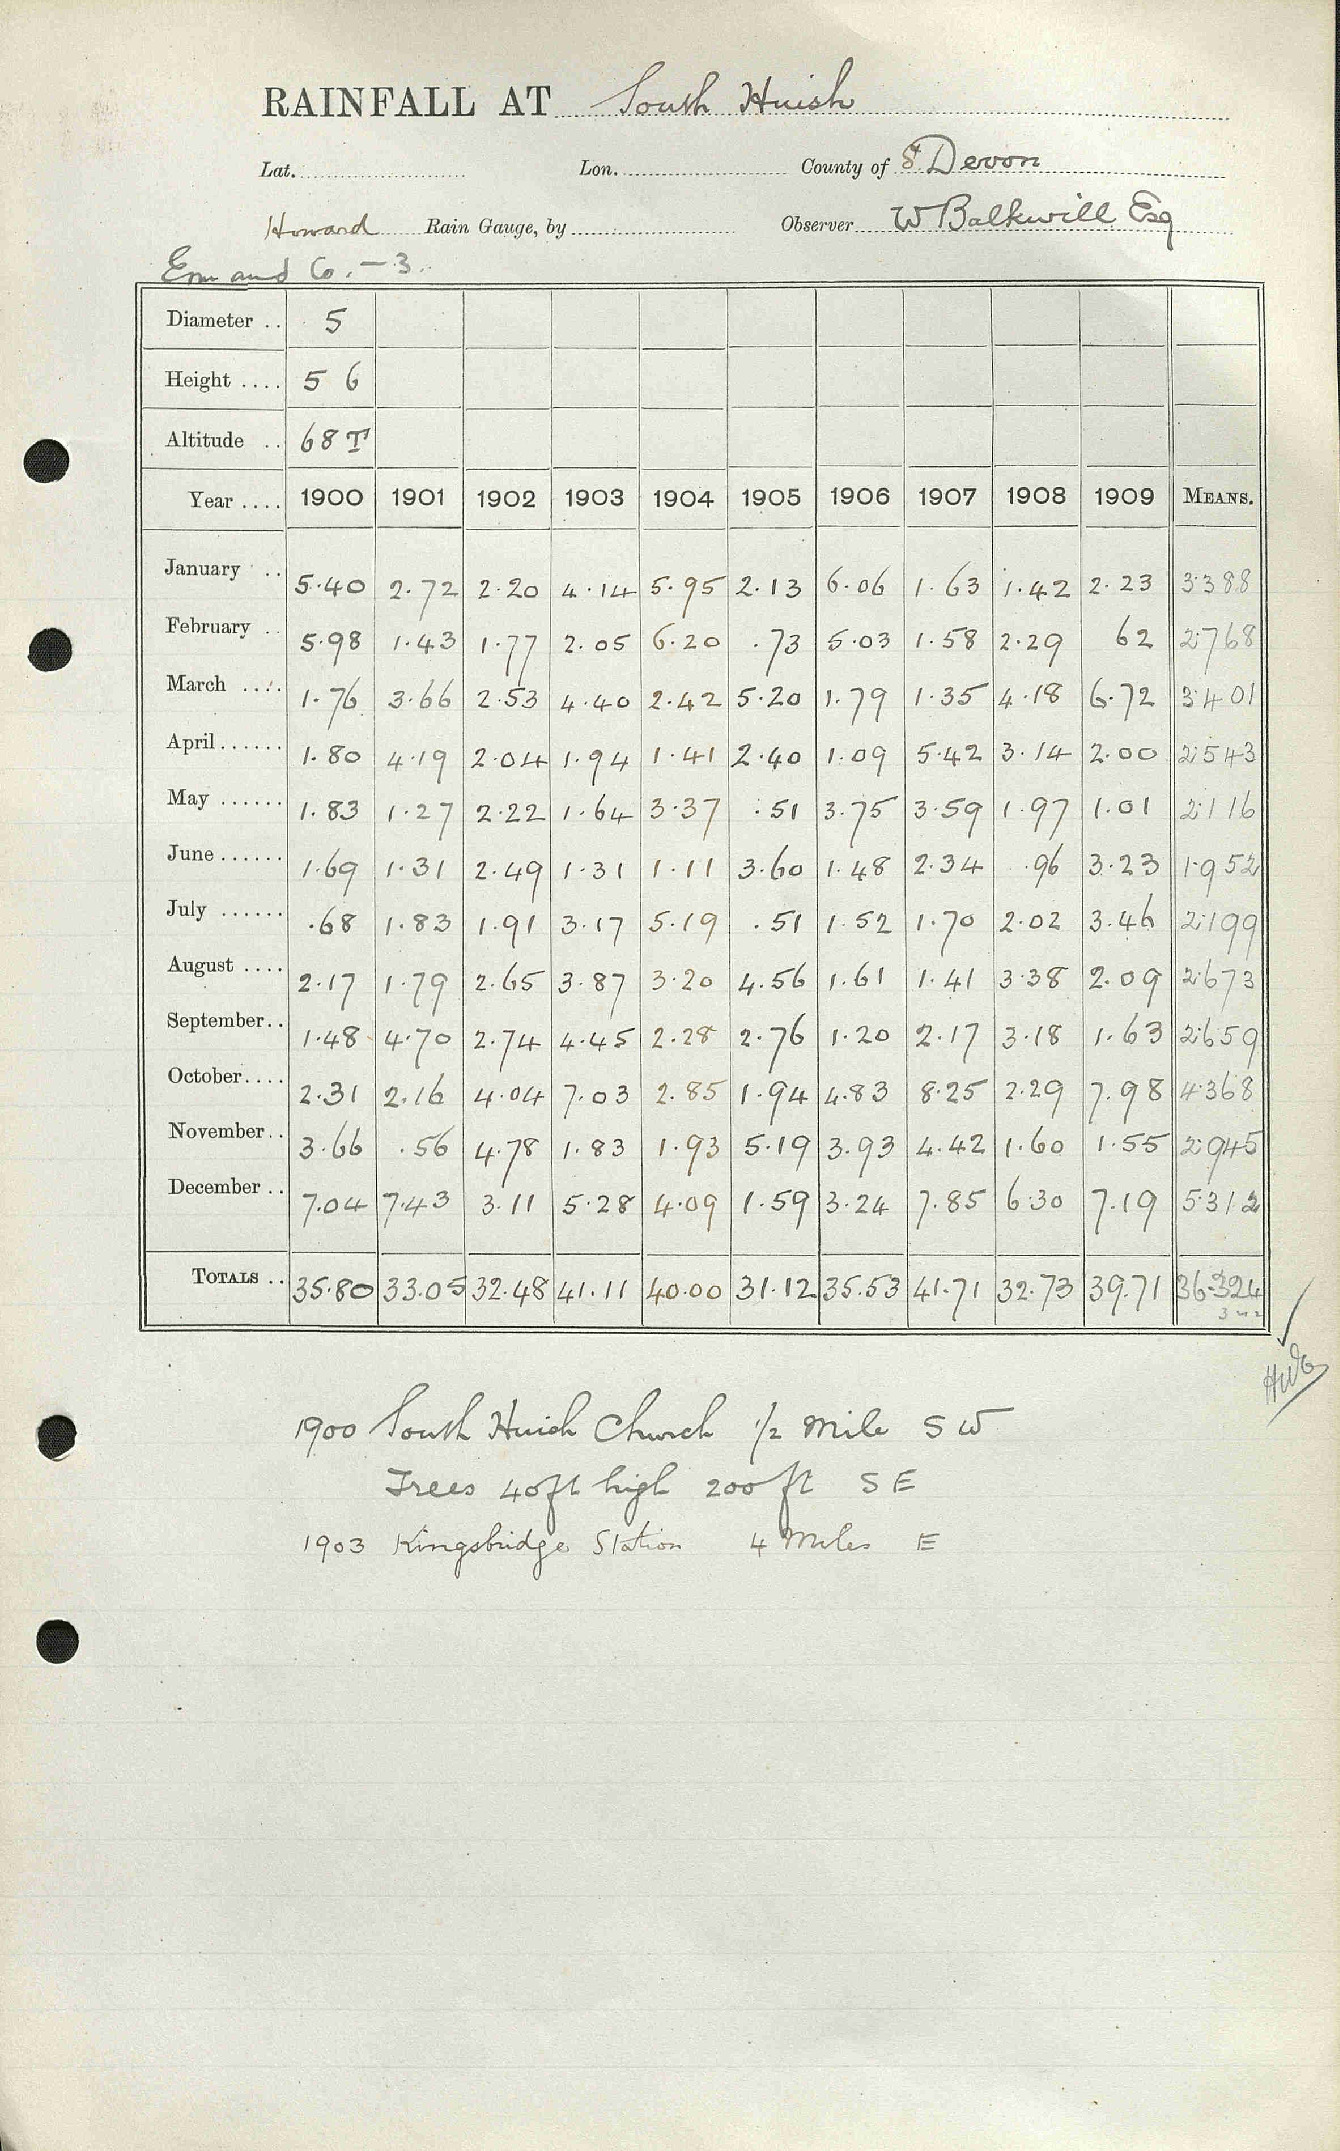 RAINFALL AT South Huish
Lat. Lon. County of S. Devon
Howard Rain Gauge, by Observer W Balkwill Esq
and Co. — 3
Diameter .. 5
Height .... 5 6
Altitude .. 68 T
Year .... 1900 1901 1902 1903 1904 1905 1906 1907 1908 1909 MEANS.
January .. 5.40 2.72 2.20 4.14 5.95 2.13 6.06 1.63 1.42 2.23 3.388
February .. 5.98 1.43 1.77 2.05 6.20 .73 5.03 1.58 2.29 62 2.768
March .... 1.76 3.66 2.53 4.40 2.42 5.20 1.79 1.35 4.18 6.72 3.401
April ...... 1.80 4.19 2.04 1.94 1.41 2.40 1.09 5.42 3.14 2.00 2.543
May ...... 1.83 1.27 2.22 1.64 3.37 .51 3.75 3.59 1.97 1.01 2.116
June ...... 1.69 1.31 2.49 1.31 1.11 3.60 1.48 2.34 .96 3.23 1.952
July ...... .68 1.83 1.91 3.17 5.19 .51 1.52 1.70 2.02 3.46 2.199
August .... 2.17 1.79 2.65 3.87 3.20 4.56 1.61 1.41 3.38 2.09 2.673
September .. 1.48 4.70 2.74 4.45 2.28 2.76 1.20 2.17 3.18 1.63 2.659
October .... 2.31 2.16 4.04 7.03 2.85 1.94 4.83 8.25 2.29 7.98 4.368
November .. 3.66 .56 4.78 1.83 1.93 5.19 3.93 4.42 1.60 1.55 2.945
December .. 7.04 7.43 3.11 5.28 4.09 1.59 3.24 7.85 6.30 7.19 5.312
TOTALS .. 35.80 33.05 32.48 41.11 40.00 31.12 35.53 41.71 32.73 39.71 36.324
1900 South Huish Church 1/2 Mile S W
Trees 40ft high 200ft S E
1903 Kingsbridge Station 4 Miles E